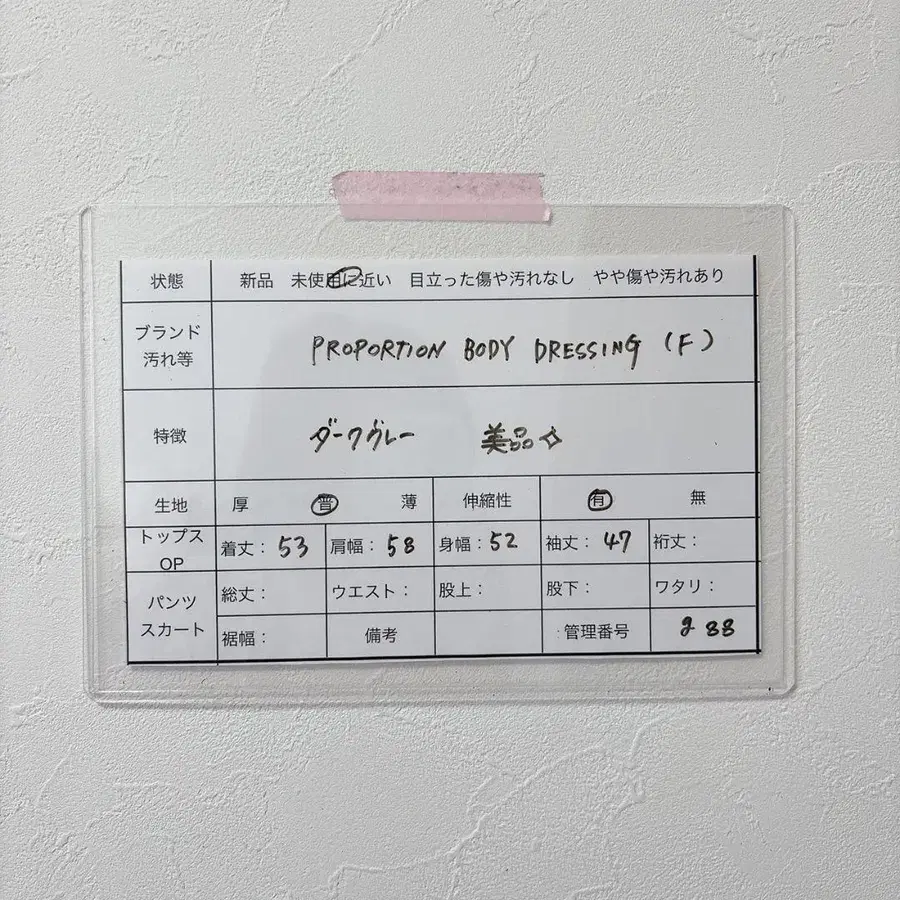 状態 新品 未使用に近い 目立った傷や汚れなし やや傷や汚れあり
ブランド
汚れ等
PROPORTION BODY DRESSING (F)
特徴 ダークグレー 美品✧
生地 厚 普 薄 伸縮性 有 無
トップス
OP
着丈: 53 肩幅: 58 身幅: 52 袖丈: 47 裄丈:
パンツ
スカート
総丈: ウエスト: 股上: 股下: ワタリ:
裾幅: 備考 管理番号 g 88